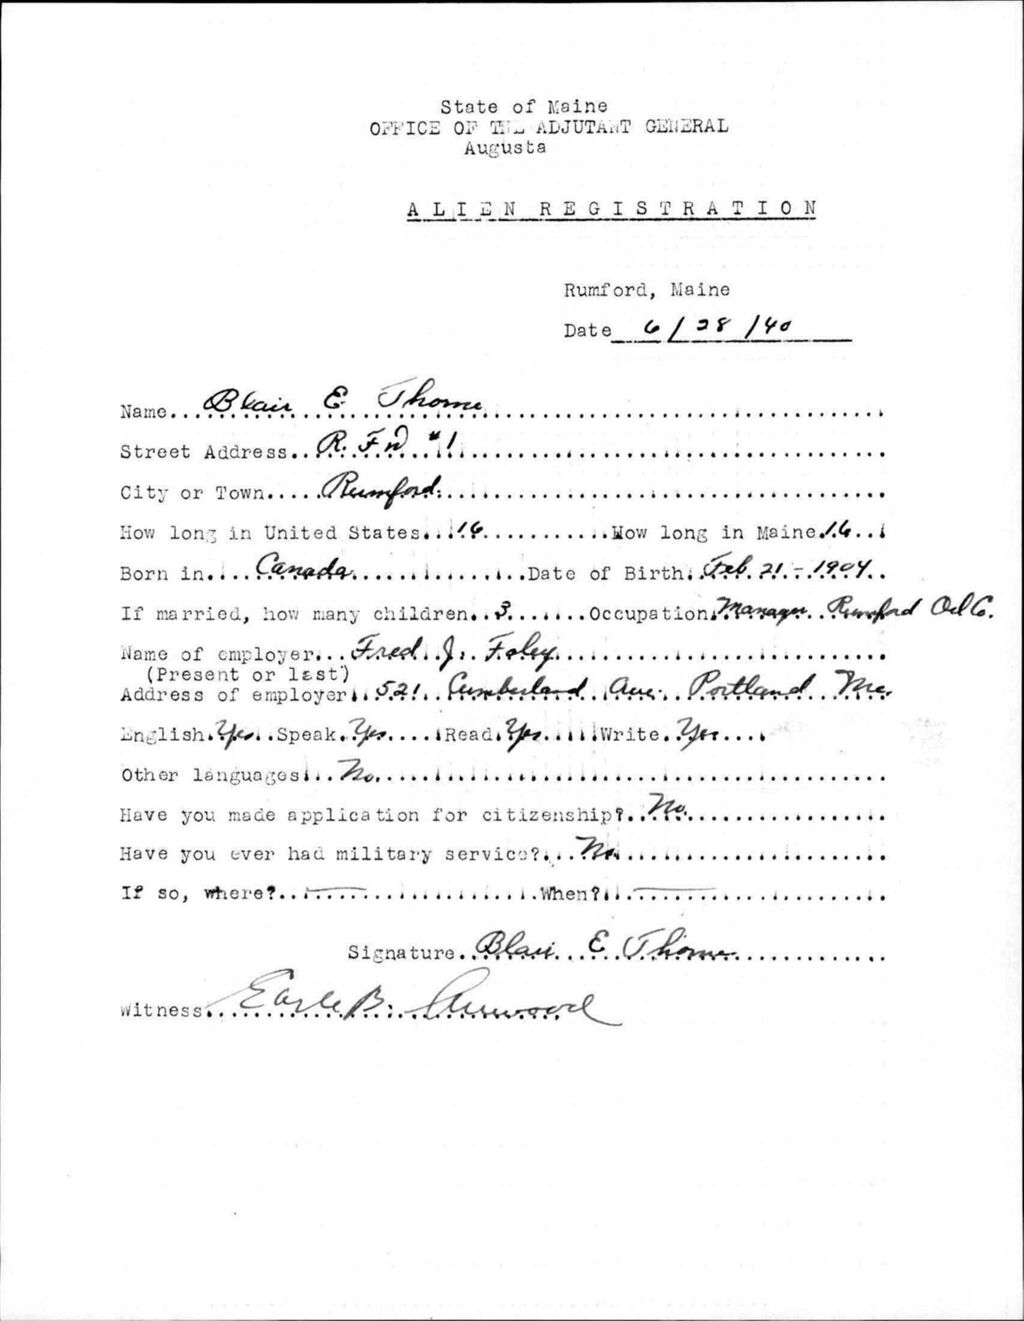 State of Maine
OFFICE OF THE ADJUTANT GENERAL
Augusta
ALIEN REGISTRATION
Rumford, Maine
Date 6/28/40
Name... Blair E. Thorne
Street Address.. R.F.D #1
City or Town..... Rumford.
How long in United States.. 16 ...How long in Maine 16
Born in.... Canada ...Date of Birth. Feb. 21 - 1904
If married, how many children.. 3 ...Occupation. Manager Rumford Oil Co.
Name of employer... Fred J. Foley
(Present or last)
Address of employer.. 521 Cumberland Ave. Portland Me.
English. Yes ..Speak. Yes ....Read. Yes ....Write. Yes ....
Other languages... No.
Have you made application for citizenship?.. No.
Have you ever had military service?... No
If so, where?.. — ...When?.. —
Signature.. Blair E. Thorne
Witness. Earle B.